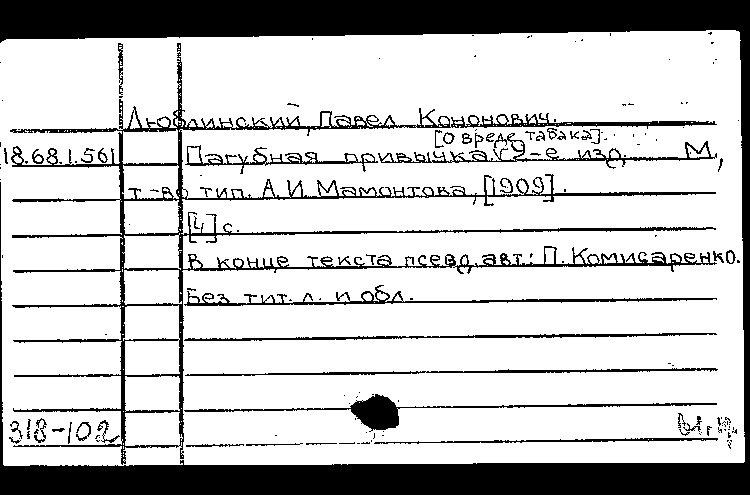 Люблинский, Павел Кононович.
[О вреде табака].
18.68.1.561 Пагубная привычка. 9-е изд. М,
т-во тип. А.И. Мамонтова, [1909].
[4] с.
В конце текста псевд. авт.: П. Комисаренко.
Без тит. л. и обл.
318-102